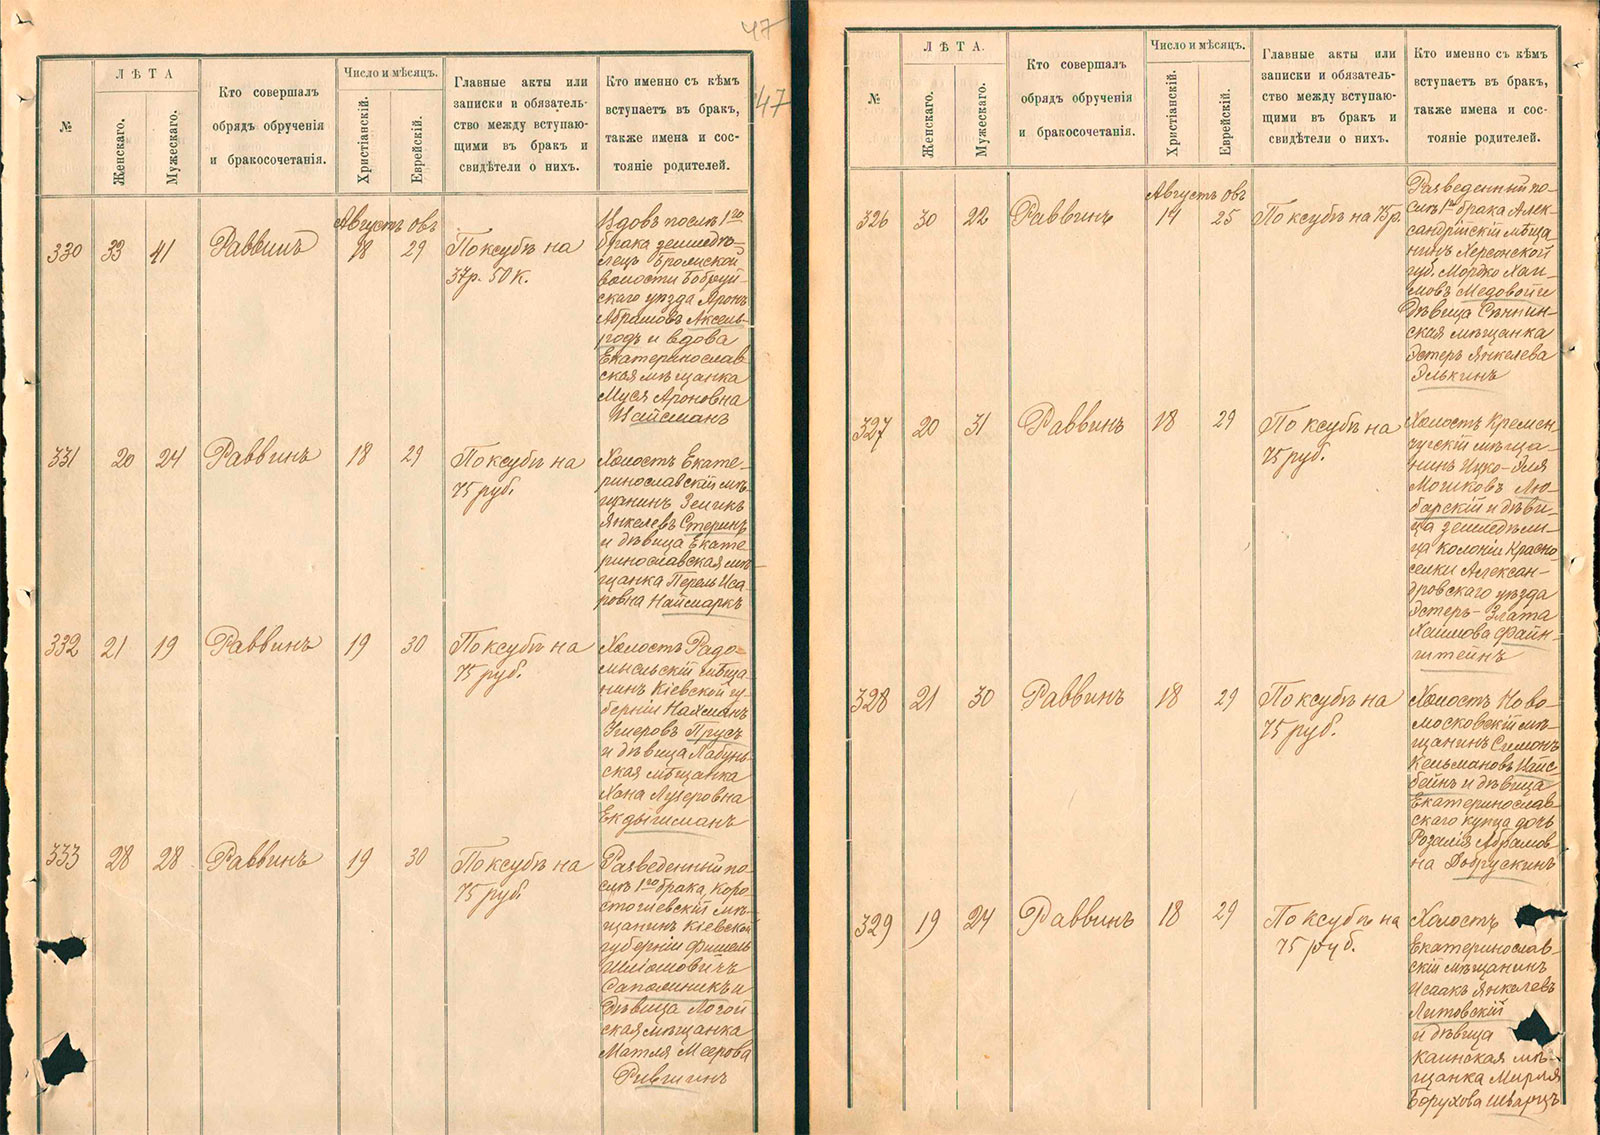 47
47
№
ЛѢТА
Женскаго.
Мужескаго.
Кто совершалъ
обрядъ обрученія
и бракосочетанія.
Число и мѣсяцъ.
Христіанскій.
Еврейскій.
Главные акты или
записки и обязатель-
ство между вступаю-
щими въ бракъ и
свидѣтели о нихъ.
Кто именно съ кѣмъ
вступаетъ въ бракъ,
также имена и сос-
тояніе родителей.
Августъ Овъ
330 33 41 Раввинъ 18 29
По ксубѣ на
37р. 50к.
Вдовъ послѣ 1го
брака землед
ѣлецъ
волости Бобруй-
скаго уѣзда Аронъ
Абрамовъ Аксель-
родъ и вдова
Екатеринослав
ская мѣщанка
Муся Ароновна
Цайсманъ
331 20 24 Раввинъ 18 29
По ксубѣ на
75 руб.
Холостъ Екате-
ринославскій мѣ-
щанинъ Зеликъ
Янкелевъ Стеринъ
и дѣвица Екате
ринославская мѣ-
щанка Перель Иса
ровна Наймаркъ
332 21 19 Раввинъ 19 30
По ксубѣ на
75 руб.
Холостъ Радо-
мысльскій мѣща
нинъ Кіевской гу
берніи Нахманъ
Ушеровъ Прусъ
и дѣвица Лабунь
ская мѣщанка
Хана Лузеровна
Екдышманъ
333 28 28 Раввинъ 19 30
По ксубѣ на
75 руб
Разведенный по
слѣ 1го брака, Коро
стошевскій мѣ-
щанинъ Кіевской
губерніи Фишель
Шліомовичъ
Сапожникъ и
дѣвица Логой
ская мѣщанка
Матля Меерова
Ривкинъ
№
ЛѢТА.
Женскаго.
Мужескаго.
Кто совершалъ
обрядъ обрученія
и бракосочетанія.
Число и мѣсяцъ.
Христіанскій.
Еврейскій.
Главные акты или
записки и обязатель-
ство между вступаю-
щими въ бракъ и
свидѣтели о нихъ.
Кто именно съ кѣмъ
вступаетъ въ бракъ,
также имена и сос-
тояніе родителей.
Августъ Овъ
326 30 22 Раввинъ 14 25
По ксубѣ на 75р.
Разведенный по-
слѣ 1го брака Алек-
сандрійскій мѣща
нинъ Херсонской
губ. Мордко Хаи-
мовъ Медовой и
дѣвица Сѣнин-
ская мѣщанка
Эстеръ Янкелева
Элькинъ
327 20 31 Раввинъ 18 29
По ксубѣ на
75 руб.
Холостъ Кремен
чугскій мѣща-
нинъ Ицко-Эля
Мошковъ Лю-
барскій и дѣви-
ца земледѣли-
ца колоніи Красно
селки Алексан-
дровскаго уѣзда
Эстеръ-Злата
Хаимова Файн-
штейнъ
328 21 30 Раввинъ 18 29
По ксубѣ на
75 руб.
Холостъ Ново-
московскій мѣ-
щанинъ Симонъ
Кельмановъ Вайс-
бейнъ и дѣвица
Екатеринослав
скаго купца дочь
Розалія Абрамов
на Добрускинъ
329 19 24 Раввинъ 18 29
По ксубѣ на
75 руб.
Холостъ
Екатеринослав-
скій мѣщанинъ
Исаакъ Янкелевъ
Литовскій
и дѣвица
Каинская мѣ-
щанка Мирля
Борухова Шварцъ